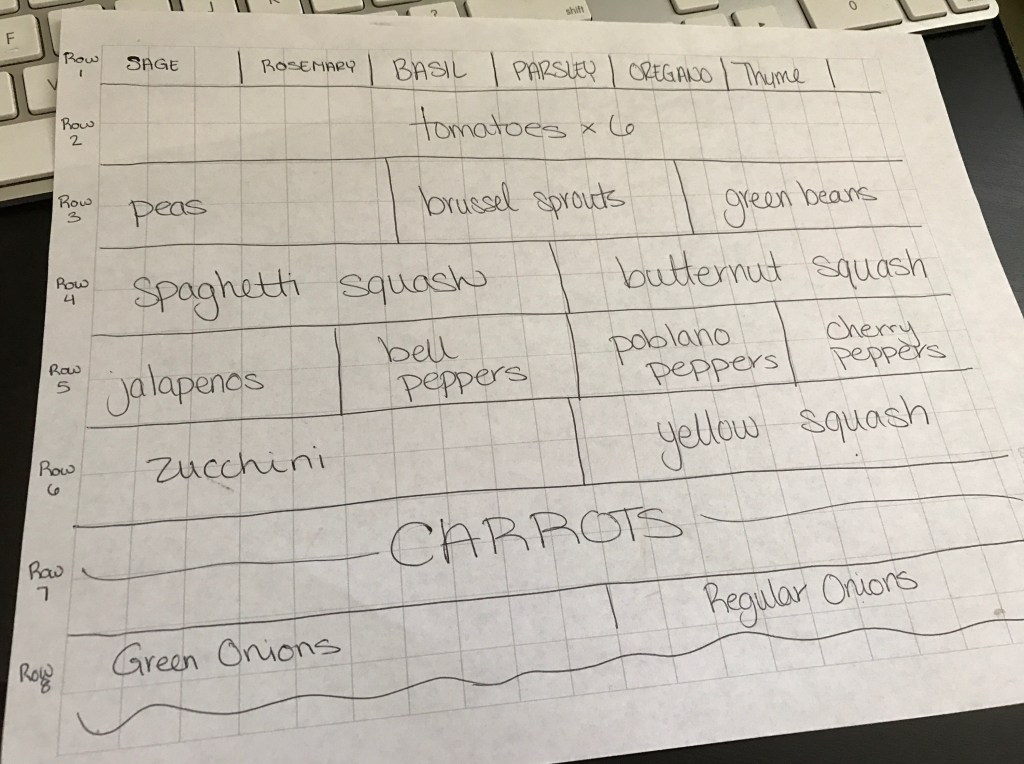 F
shift
?
0
Row 1 SAGE | ROSEMARY | BASIL | PARSLEY | OREGANO | Thyme |
Row 2 tomatoes x 6
Row 3 peas brussel sprouts green beans
Row 4 spaghetti squash butternut squash
Row 5 jalapenos bell peppers poblano peppers cherry peppers
Row 6 zucchini yellow squash
Row 7 CARROTS
Row 8 Green Onions Regular Onions